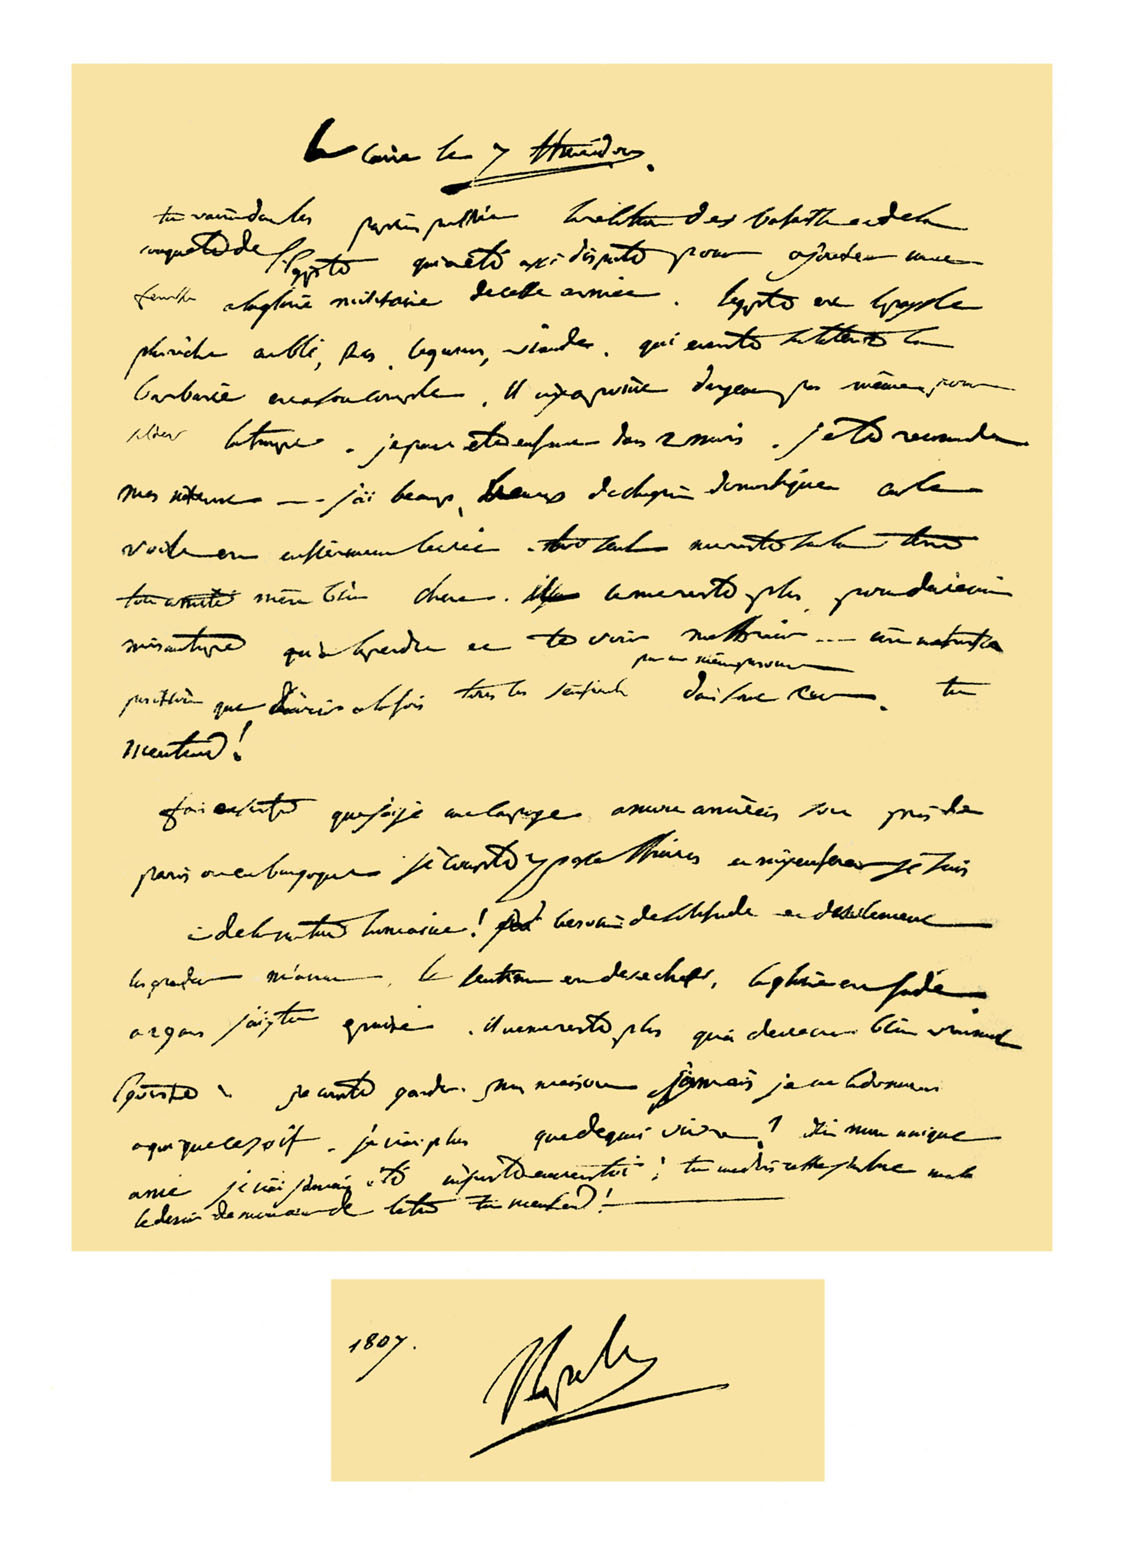 le Caire le 7 thermidor.
tu verra dan les papiers publics le resultat des batailles et de la
conquete de l'Egypte qui a été assé disputé pour ajouter une
feuille a la gloire militaire de cette armée. l'egypte est le pays le
plus riche en blé, ris, legumes, viandes, qui existe sur la terre la
barbarie est a son comble. Il n'y a point d'argent pas même pour
solder la troupe. je peux être en france dans 2 mois. je te recomande
mes interets -- j'ai beaucoup, beaucoup de chagrin domestique car le
voile est entierement levé. toi seul me reste sur la terre
ton amitié m'est bien chere. il ne me reste plus pour devenir
misantrope qu'a la perdre et te voir me trahir --- c'est une triste
par une même personne
position que d'avoir a la fois tous les sentiments dans un seul cœur. tu
m'entend!
fais en sorte que j'aie une campagne a mon arrivée soit près de
paris ou en bourgogne je compte y passer l'hiver et m'y enfermer je suis
de la nature humaine! j'ai besoin de solitude et d'isolement
les grandeurs m'ennuie, le sentiment est deseché, la gloire est fade
a 29 ans j'ai tout épuisé. il ne me reste plus qu'a devenir bien vraiment
égoiste je compte garder ma maison jamais je ne la donnerai
a qui que ce soit. je n'ai plus que de quoi vivre! adieu mon unique
ami je n'ai jamais été injuste envers toi; tu me dois cette justice malgré
le desir de mon cœur de l'etre tu m'entend!
1807.